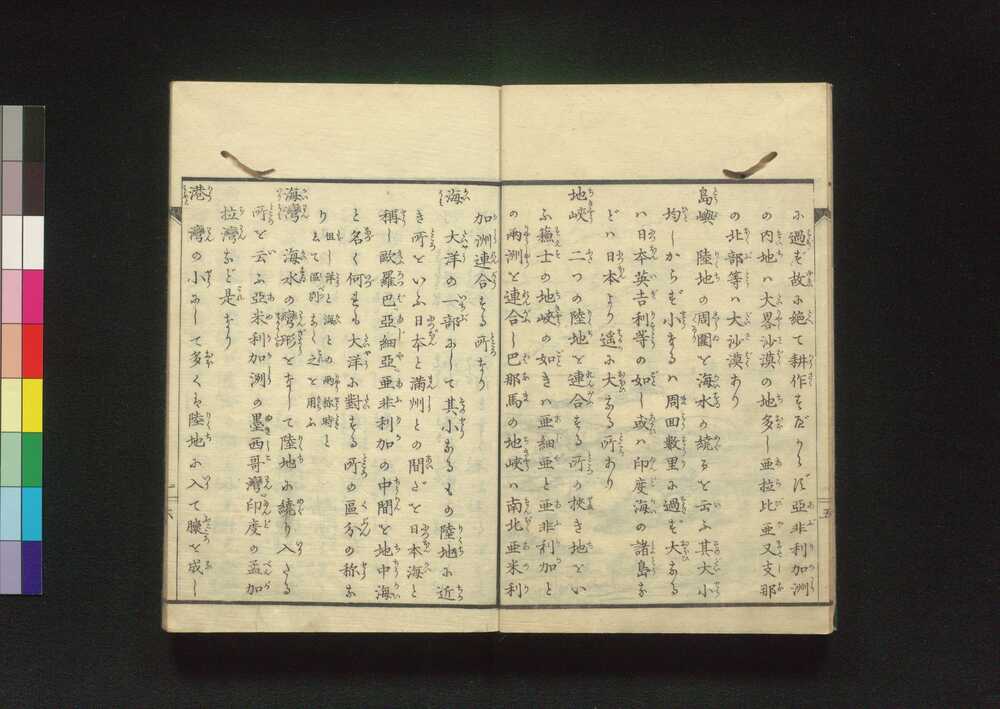 に過ず故に絶て耕作をなさず亞非利加洲
の内地ハ大畧沙漠の地多し亜拉比亜又支那
の北部等ハ大沙漠あり
島嶼 陸地の周圍を海水の繞るを云ふ其大小
均しからず小なるハ周回數里に過ず大なる
ハ日本英吉利等の如し或ハ印度海の諸島な
どハ日本より遥に大なる所あり
地峽 二つの陸地を連合する所の挾き地をい
ふ蘓士の地峽の如きハ亜細亜と亜非利加と
の兩洲を連合し巴那馬の地峽ハ南北亜米利
加洲連合する所なり
海 大洋の一部にして其小なるもの陸地に近
き所をいふ日本と滿州との間だを日本海と
稱し歐羅巴亞細亞亜非利加の中間を地中海
と名く何も大洋に對する所の區分の称な
り 但し洋と海との兩称時と
して區別なく之を用ふ
海灣 海水の灣形をなして陸地に繞り入たる
所を云ふ亞米利加洲の墨西哥灣印度の孟加
拉灣など是なり
港 灣の小にして多くは陸地に入て臟を成し